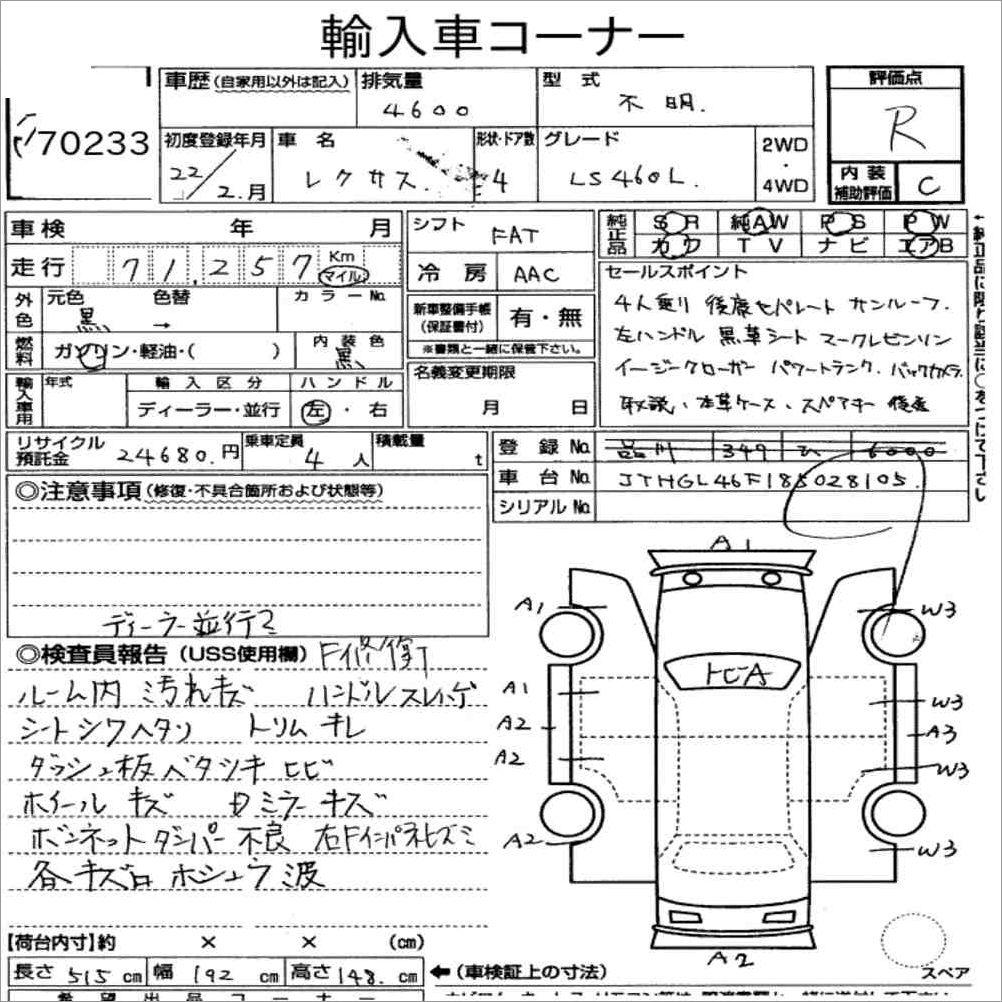 輸入車コーナー
70233
車歴 (自家用以外は記入)
排気量
4600
型式
不明.
評価点
R
初度登録年月
22/2.月
車名
レクサス.
形状・ドア数
4
グレード
LS460L.
2WD
・
4WD
内装
補助評価
C
車検 年 月
走行 71,257 Km マイル
外色
元色 色替 カラーNo.
黒 →
燃料
ガソリン・軽油・( )
内装色
黒
輸入車用
年式
輸入区分
ハンドル
ディーラー・並行
左・右
シフト FAT
冷房 AAC
新車整備手帳
(保証書付)
有・無
※書類と一緒に保管下さい。
名義変更期限
月 日
純正品
SR 純AW PS PW
カワ TV ナビ エアB
セールスポイント
4人乗り 後席セパレート サンルーフ.
左ハンドル 黒革シート マークレビンソン
イージークローザー パワートランク. バックカメラ.
取説、本革ケース、スペアキー 後送
リサイクル
預託金
24680.円
乗車定員
4人
積載量
t
登録No. 品川 349 ひ 6000
車台No. JTHGL46F185028105.
シリアルNo.
◎注意事項 (修復・不具合箇所および状態等)
ディーラー並行?
◎検査員報告 (USS使用欄) F修復
ルーム内 汚れキズ ハンドルスレハゲ
シートシワヘタリ トリムキレ
ダッシュ板ベタツキ ヒビ
ホイール キズ ドミラーキズ
ボンネットダンパー不良 右Fインパネヒズミ
各キズロ ホシュウ 波
A1
A1
W3
トビA
A1
W3
A2
A3
A2
W3
A2
W3
A2
スペア
【荷台内寸】約 × × (cm)
長さ 515 cm 幅 192 cm 高さ 148. cm
←(車検証上の寸法)
希望出品コーナー